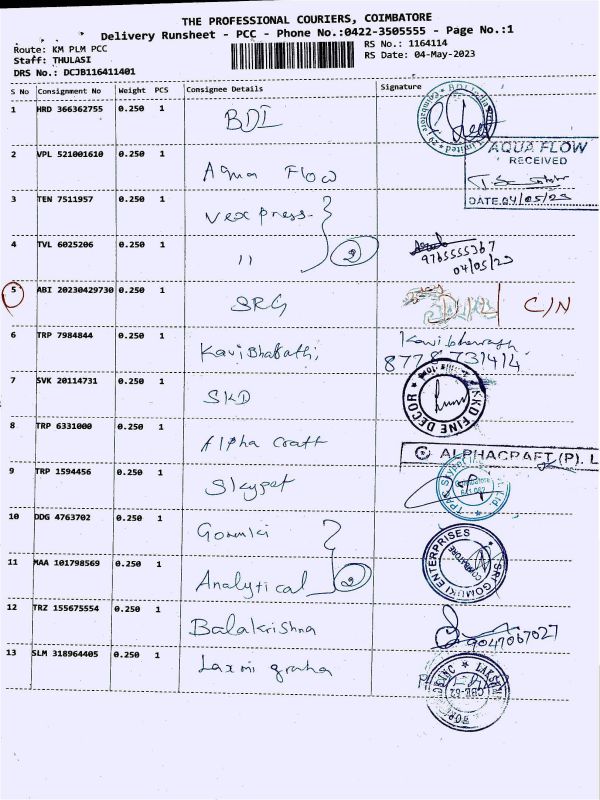 THE PROFESSIONAL COURIERS, COIMBATORE
Delivery Runsheet - PCC - Phone No.:0422-3505555 - Page No.:1
Route: KM PLM PCC
RS No.: 1164114
Staff: THULASI
RS Date: 04-May-2023
DRS No.: DCJB116411401
S No Consignment No Weight PCS Consignee Details Signature
1 HRD 366362755 0.250 1 BDI
2 VPL 521001610 0.250 1 Aqua Flow
AQUA FLOW
RECEIVED
DATE.04/05/23
3 TEN 7511957 0.250 1 Vexpress
4 TVL 6025206 0.250 1 11 2
9765555367
04/05/23
5 ABI 20230429730 0.250 1 SRG C/N
6 TRP 7984844 0.250 1 Kavibharathi
8778731414
7 SVK 20114731 0.250 1 SKD
KKD FINE DECOR
8 TRP 6331000 0.250 1 Alpha Craft
ALPHACRAFT (P). L
9 TRP 1594456 0.250 1 Skypet
10 DDG 4763702 0.250 1 Gomuki
SRI GOMUKI ENTERPRISES
COIMBATORE
11 MAA 101798569 0.250 1 Analytical 2
12 TRZ 155675554 0.250 1 Balakrishna
9047067027
13 SLM 318964405 0.250 1 Laxmi graha